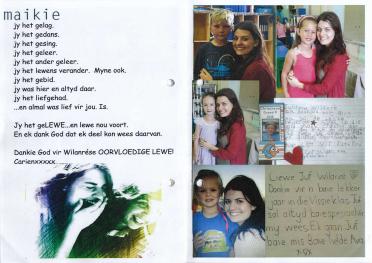 maikie
jy het gelag.
jy het gedans.
jy het gesing.
jy het geleer.
jy het ander geleer.
jy het lewens verander. Myne ook.
jy het gebid.
jy was hier en altyd daar.
jy het liefgehad.
...en almal was lief vir jou. Is.
Jy het geLEWE...en lewe nou voort.
En ek dank God dat ek deel kan wees daarvan.
Dankie God vir Wilanrése OORVLOEDIGE LEWE!
Carienxxxxx
Liewe Juf Wilanrie
Dankie vir n baie lekker
jaar in die Visseklas Juf
sal altyd baie spesiaal vir
my wees. Ek gaan Juf
baie mis. Baie liefde Ava
xox